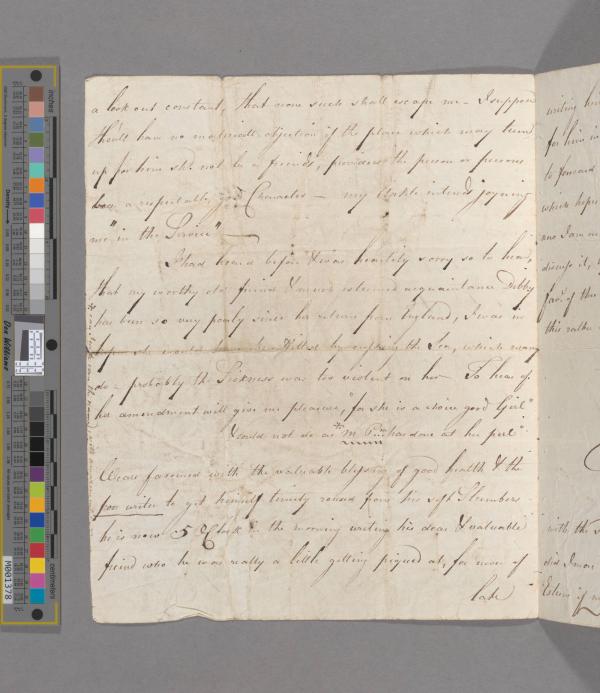 a look out constant, that none such shall escape me - I suppose
thou'll have no materiall objection if the place which may turn
up for him shd. not be a friends, provided the person or persons
bear a respectable, good Character - my Unkle intends joyning
me "in the Service" -
I had heard before & was heartily sorry so to hear,
that my worthy old friend & much esteemed acquaintance Debby
has been so very poorly since her return from England, I was in
hopes she would have been by crossing the Sea, which many
do - probably the Sickness was too violent on her To hear of
her amendment will give me pleasure, "for she is a choice good Girl"
& could not do as Mr. at her peril"
We are favoured with the valuable blessing of good health & the
poor writer to get himself timely roused from his soft Slumbers
he is now 5 o'Clock in the morning writing his dear & valuable
friend who he was really a little getting piqued at, for never of
late
writing him
for him in
to forward
which hope
now I am on
disuse it,
favr. of thee
this rathe
with the
did I was
Esteem if
inches
centimeters
Don Williams
M001378